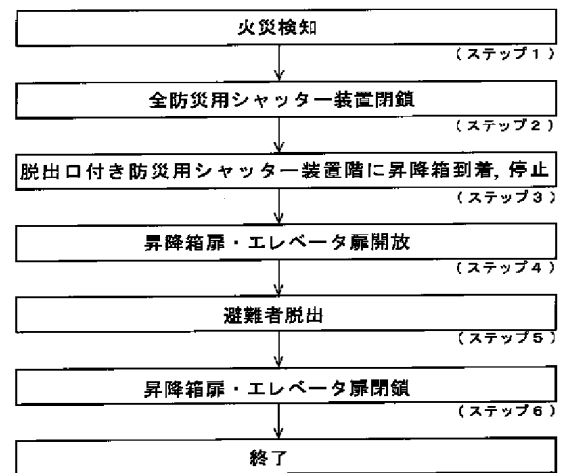 火災検知
(ステップ1)
全防災用シャッター装置閉鎖
(ステップ2)
脱出口付き防災用シャッター装置階に昇降箱到着,停止
(ステップ3)
昇降箱扉・エレベータ扉開放
(ステップ4)
避難者脱出
(ステップ5)
昇降箱扉・エレベータ扉閉鎖
(ステップ6)
終了